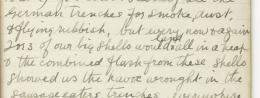 German trenches for smoke, dust,
& flying rubbish, but every now & again
2 or 3 of our big shells would fall in a heap
& the combined flash from these shells
showed us the havoc wrought in the
sausage eaters trenches, everywhere